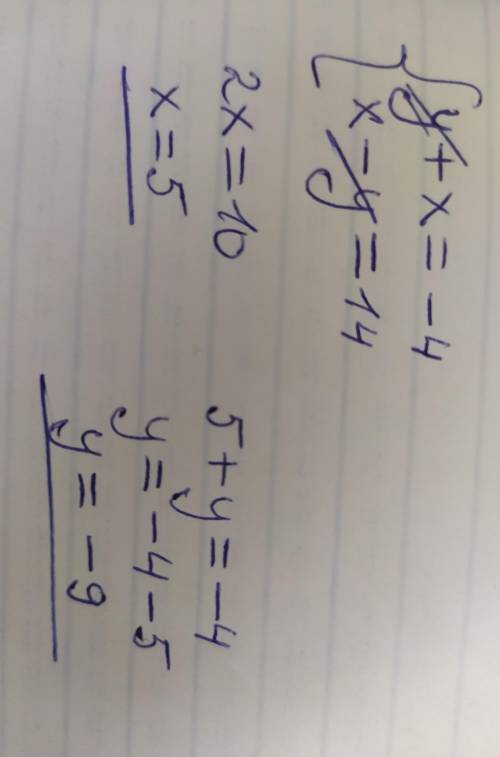 y + x = -4
x - y = 14
2x = 10
x = 5
5 + y = -4
y = -4 - 5
y = -9